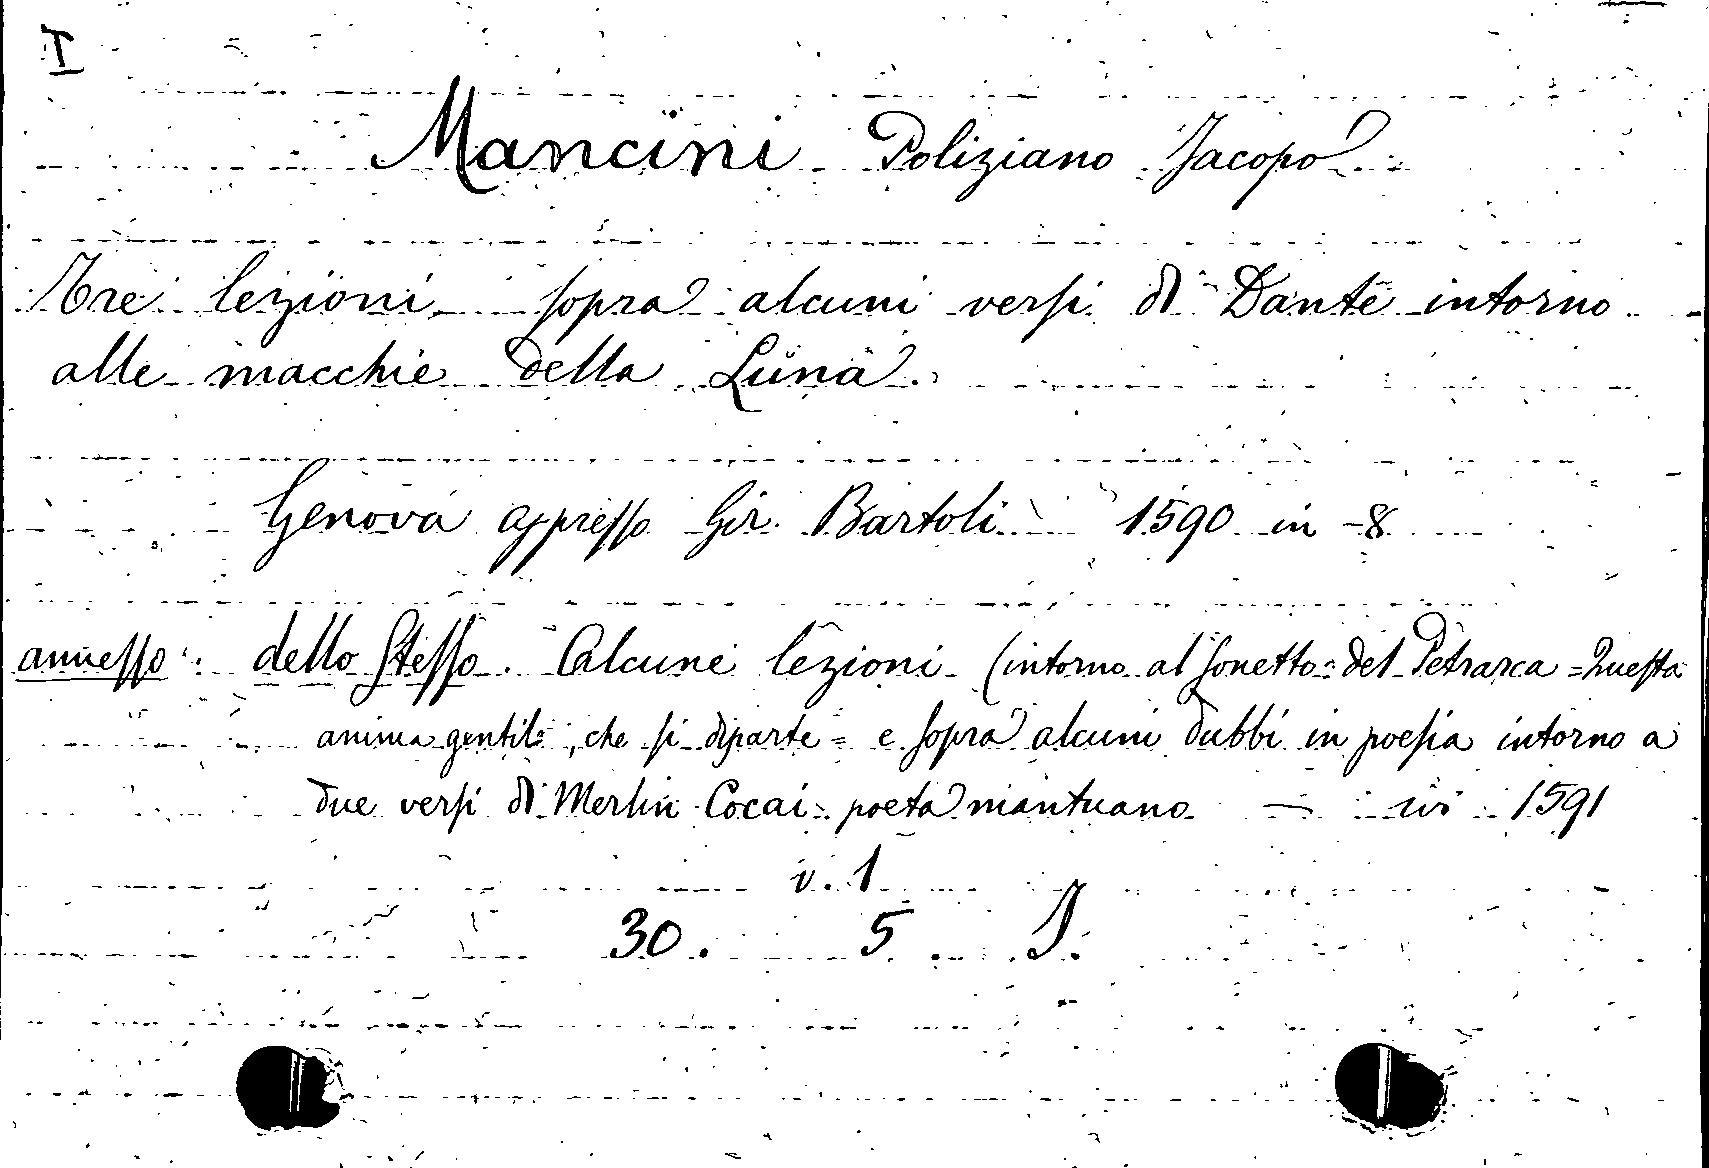 I
Mancini Poliziano Jacopo
Tre lezioni sopra alcuni versi di Dante intorno
alle macchie della Luna.
Genova appresso Gir. Bartoli 1590 in-8
annesso: dello Stesso. Alcune lezioni (intorno al sonetto del Petrarca = Questa
anima gentil, che si diparte = e sopra alcuni dubbi in poesia intorno a
due versi di Merlin Cocai poeta mantuano — ivi 1591
v. 1
30. 5. J.